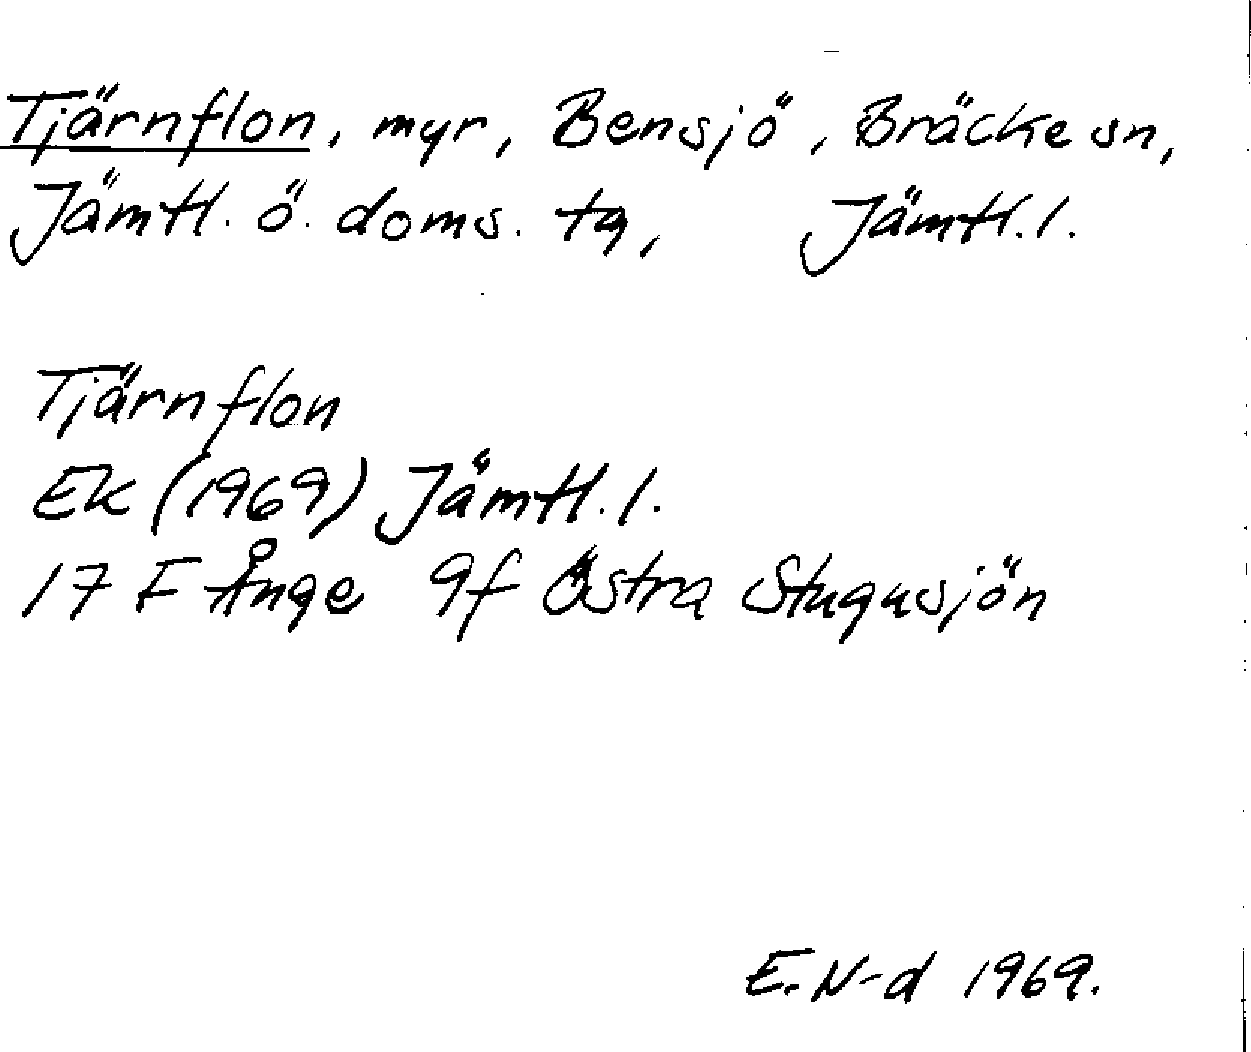 Tjärnflon, myr, Bensjö, Bräcke sn,
Jämtl. ö. doms. tg, Jämtl. l.
Tjärnflon
EK (1969) Jämtl. l.
17 F Ånge 9f Östra Stugusjön
E. N-d 1969.